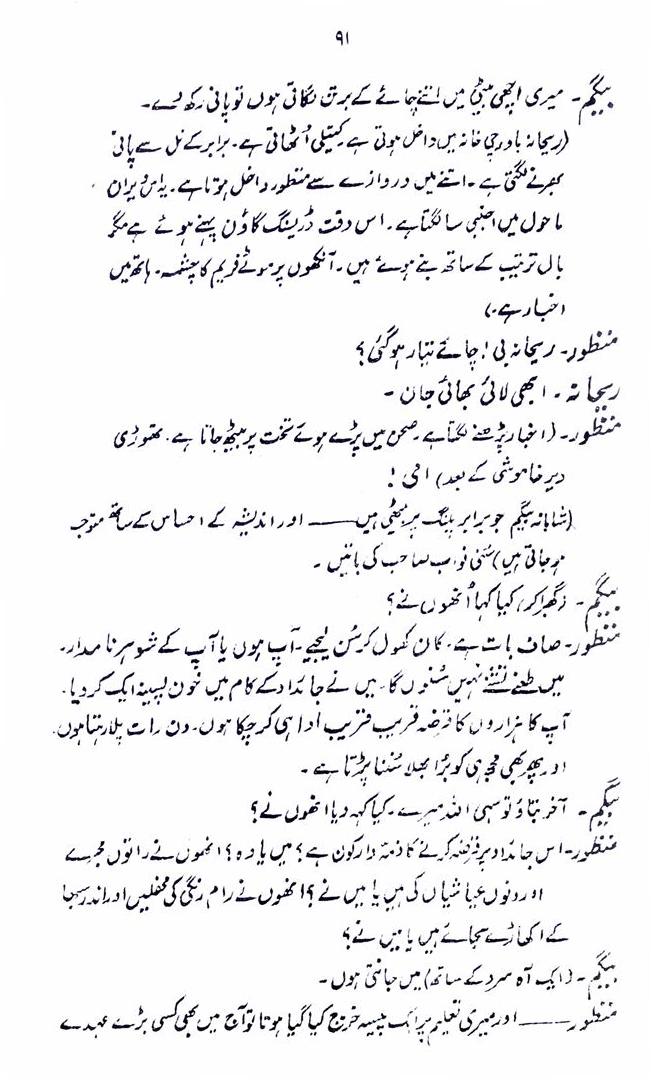 ۹۱
بیگم۔ میری اچھی بیٹی میں اتنے چائے کے برتن لگاتی ہوں تو پانی رکھ دے۔
(ریحانہ باورچی خانہ میں داخل ہوتی ہے کیتلی اُٹھاتی ہے۔ برابر کے نل سے پانی
بھرنے لگتی ہے۔ اتنے میں دروازے سے منظور داخل ہوتا ہے۔ یہ اس ویران
ماحول میں اجنبی سا لگتا ہے۔ اس وقت ڈریسنگ گاؤن پہنے ہوئے ہے مگر
بال ترتیب کے ساتھ بنے ہوئے ہیں۔ آنکھوں پر موٹے فریم کا چشمہ۔ ہاتھ میں
اخبار ہے۔)
منظور۔ ریحانہ بی! چائے تیار ہو گئی؟
ریحانہ۔ ابھی لائی بھائی جان۔
منظور۔ (اخبار پڑھنے لگتا ہے۔ صحن میں پڑے ہوئے تخت پر بیٹھ جاتا ہے۔ تھوڑی
دیر خاموشی کے بعد) امی!
(شاہانہ بیگم جو برابر پلنگ پر بیٹھی ہیں ــــــ اور اندیشہ کے احساس کے ساتھ متوجہ
ہو جاتی ہیں) سُنی نواب صاحب کی باتیں۔
بیگم۔ (گھبرا کر) کیا کہا اُنھوں نے؟
منظور۔ صاف بات ہے۔ کان کھول کر سُن لیجیے۔ آپ ہوں یا آپ کے شوہر نامدار۔
میں طعنے تشنے نہیں سُنوں گا۔ میں نے جائداد کے کام میں خون پسینہ ایک کر دیا۔
آپ کا ہزاروں کا قرضہ قریب قریب ادا ہی کر چکا ہوں۔ دن رات پلا رہتا ہوں۔
اور پھر بھی مجھی کو بُرا بھلا سُننا پڑتا ہے۔
بیگم۔ آخر بتاؤ تو سہی اللہ میرے۔ کیا کہہ دیا انھوں نے؟
منظور۔ اس جائداد پر قرضہ کرنے کا ذمہ دار کون ہے؟ میں یا وہ؟ انھوں نے راتوں مجرے
اور دنوں عیاشیاں کی ہیں یا میں نے؟ انھوں نے رام رنگی کی محفلیں اور اندر سبھا
کے اکھاڑے سجائے ہیں یا میں نے؟
بیگم۔ (ایک آہ سرد کے ساتھ) میں جانتی ہوں۔
منظور ــــــ اور میری تعلیم پر ایک پیسہ خرج کیا گیا ہوتا تو آج میں بھی کسی بڑے عہدے